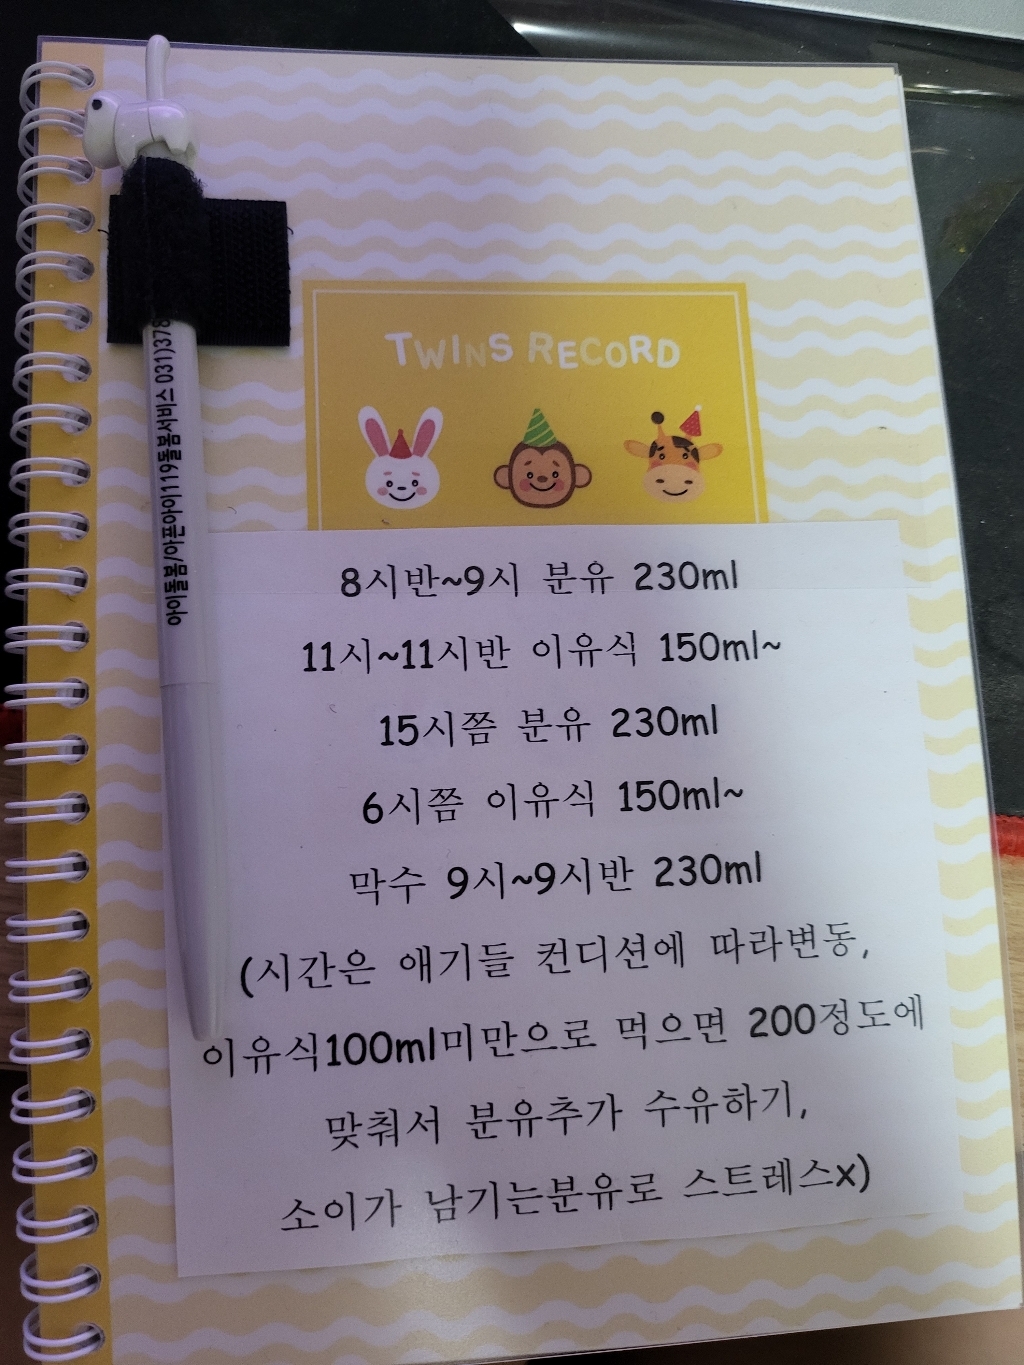 TWINS RECORD
아이돌봄/아픈아이119돌봄서비스 031)378
8시반~9시 분유 230ml
11시~11시반 이유식 150ml~
15시쯤 분유 230ml
6시쯤 이유식 150ml~
막수 9시~9시반 230ml
(시간은 애기들 컨디션에 따라변동,
이유식100ml미만으로 먹으면 200정도에
맞춰서 분유추가 수유하기,
소이가 남기는분유로 스트레스x)